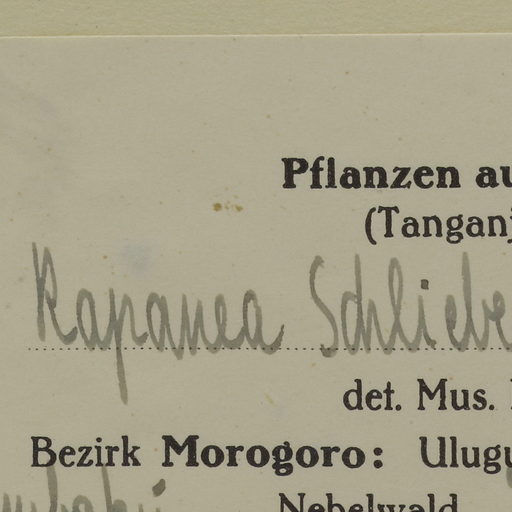 Pflanzen au
(Tanganj
Rapanea Schliebe
det. Mus.
Bezirk Morogoro: Ulugu
Nebelwald